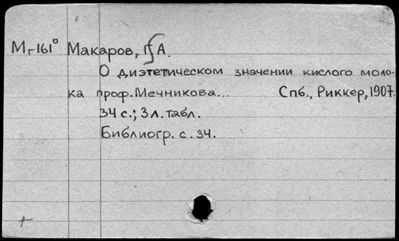 Мг161° Макаров, А.
О диэтетическом значении кислого моло-
ка проф. Мечникова... Спб., Риккер, 1907.
34 с.; 3 л. табл.
Библиогр. с. 34.